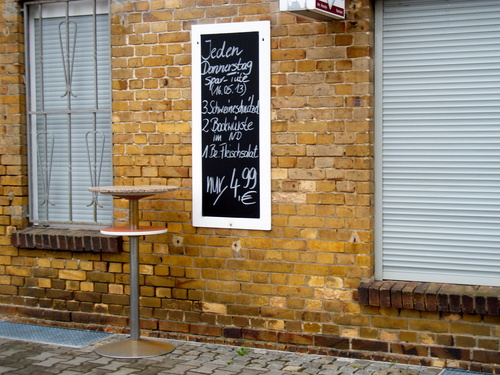 Jeden
Donnerstag
Spar-Tüte
(16.05.13)
3 Schweineschnitzel
2 Bockwürste
im ND
1 Be. Fleischsalat
nur 4.99
€